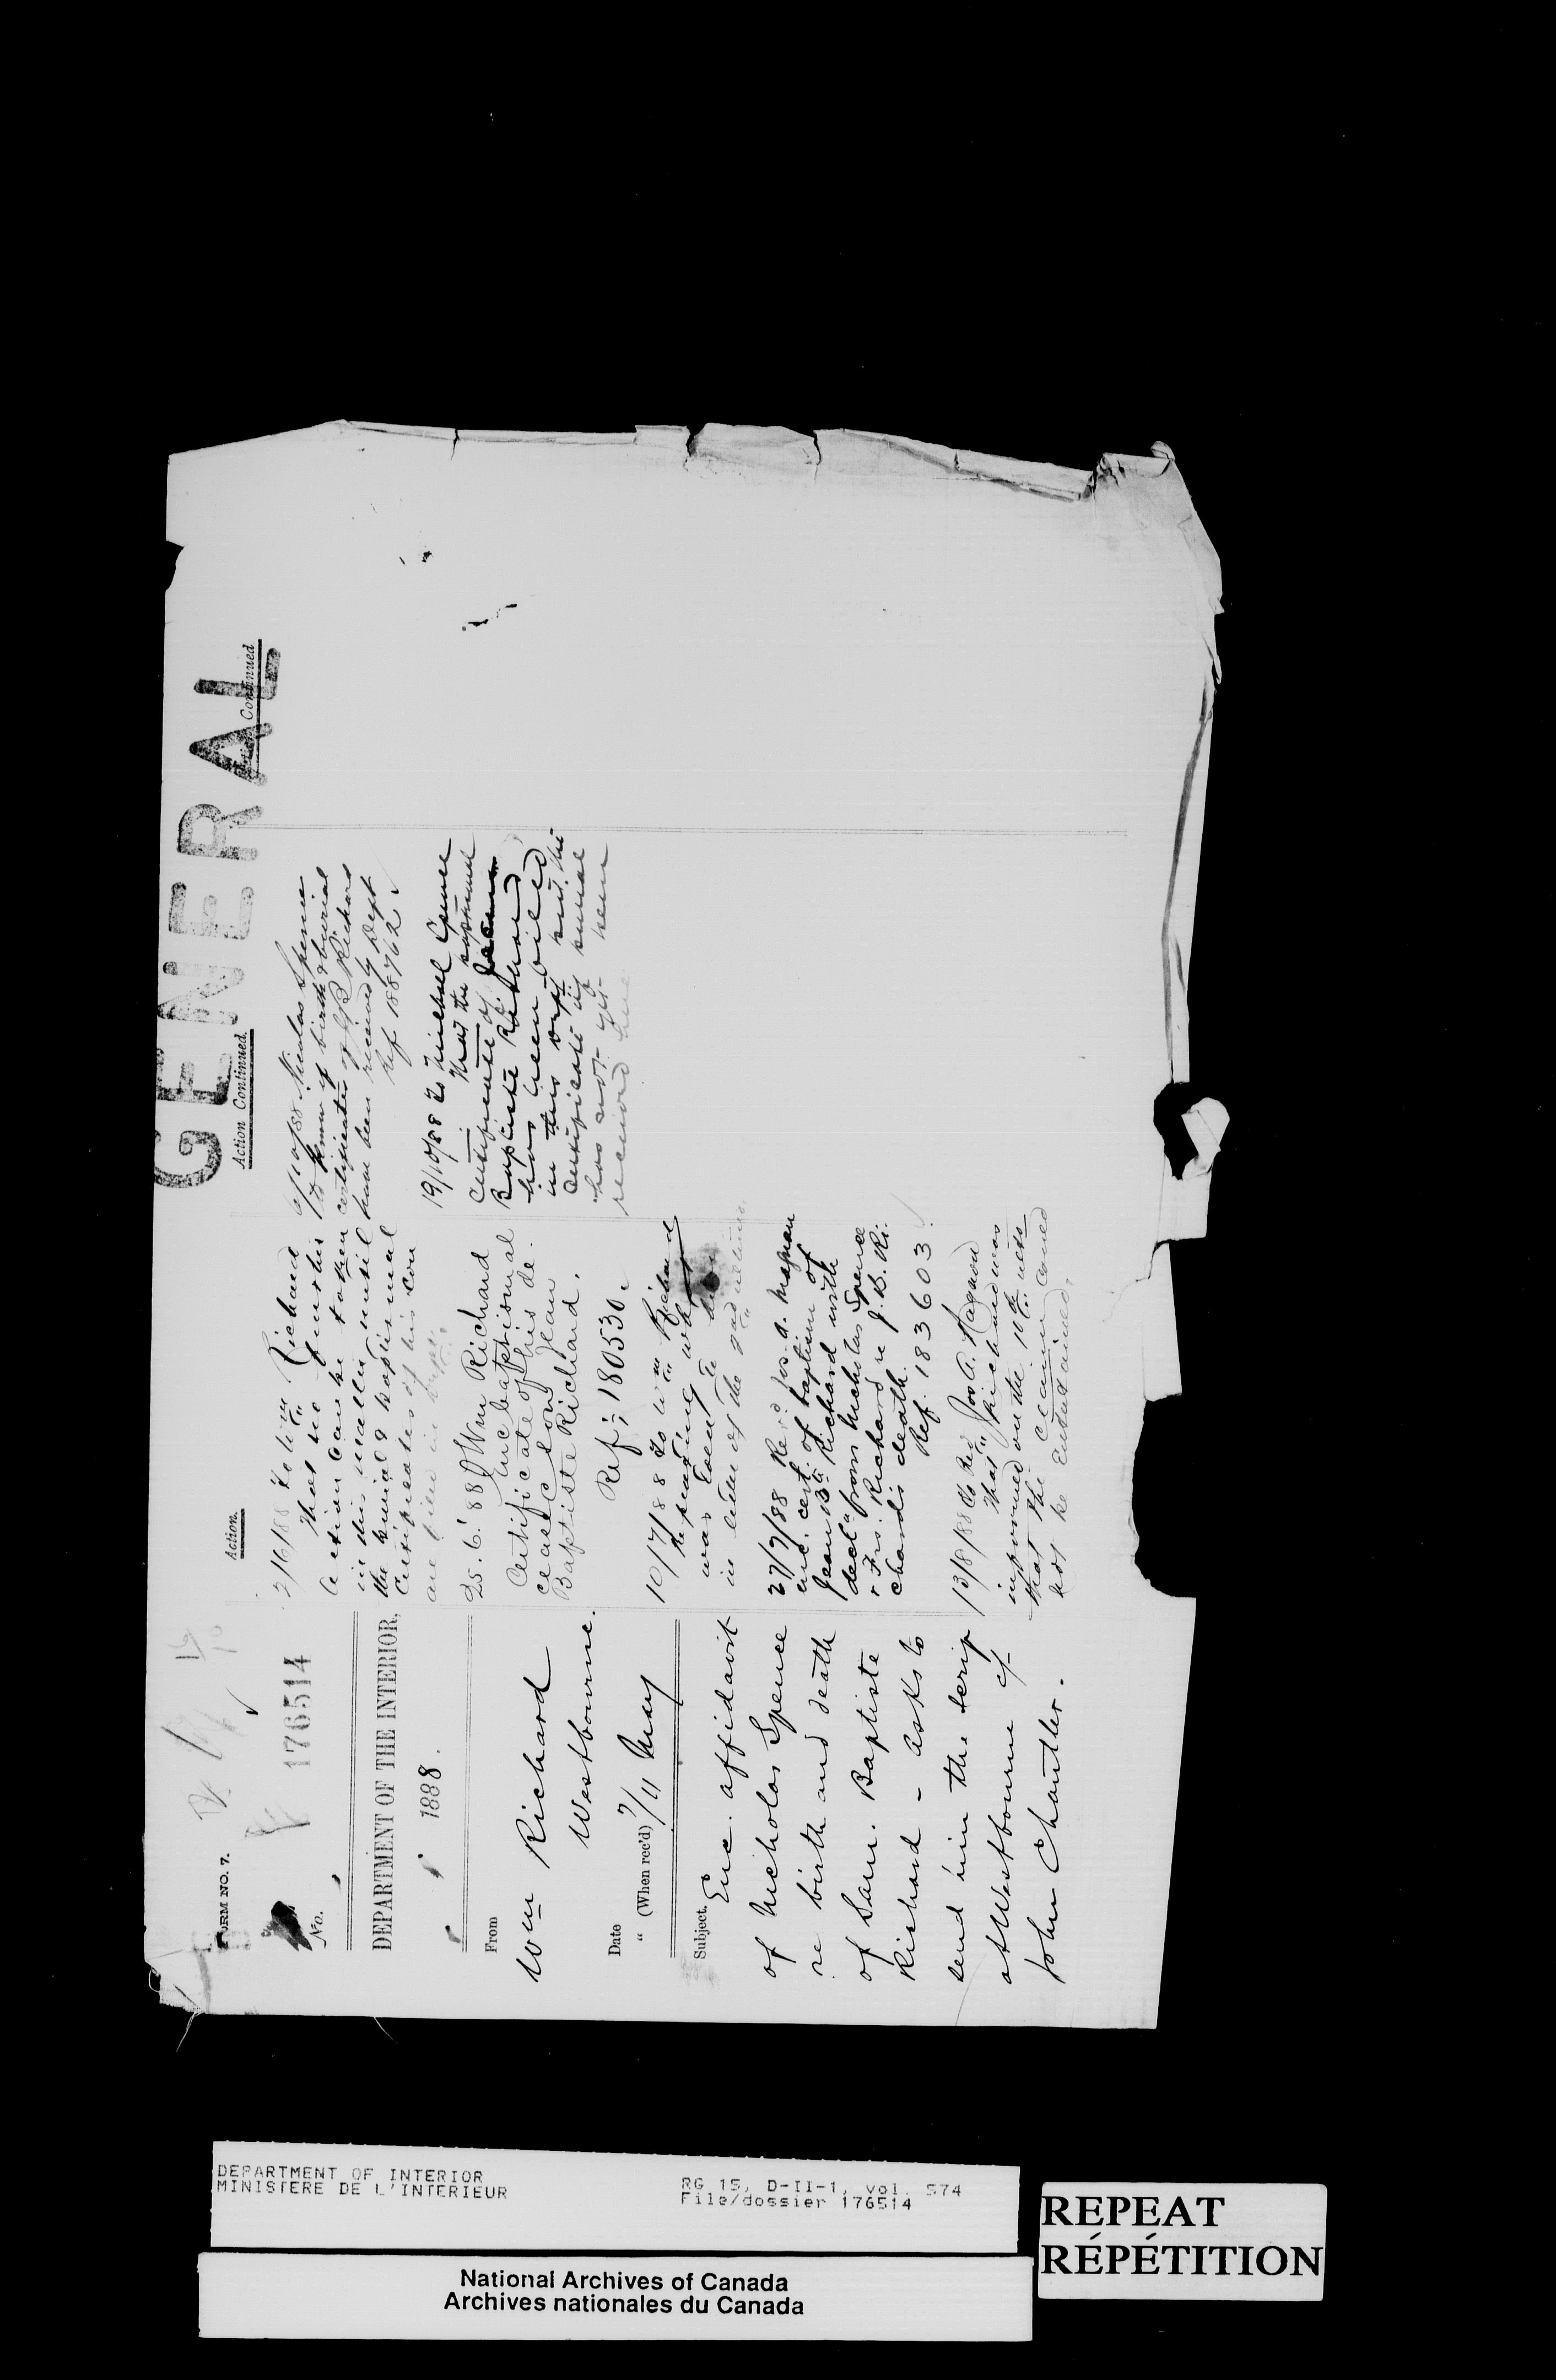 GENERAL
FORM NO. 7.
No. 176514
DEPARTMENT OF THE INTERIOR,
1888.
From
Wm Richard
Westbourne.
Date
" (When rec'd) 7/11 May
Subject.
Enc. affidavit
of Nicholas Spence
re birth and death
of Sam. Baptiste
Richard - asks to
send him the scrip
at Westbourne of
John Chantler.
Action.
2/6/88 To Wm Richard
That no further
action can be taken
in this matter until
the burial & baptismal
certificates of his son
are filed in Dept.
25.6.'88 Wm Richard
Enc baptismal
Certificate of his de-
ceased son Jean
Baptiste Richard.
Ref: 180530.
10/7/88 To Wm Richard
Repeating what
was
in letter of the 2nd ultimo
27/7/88 Revd Jos. A. Magnan
enc. cert. of baptism of
Jean Bte Richard with
decln from Nicholas Spence
& Frs. Richard re J. B. Ri-
chard's death.
Ref. 183603.
13/8/88 To Rev Jos A. Magnan
That Richard was
informed on the 10th ulto
that the claim could
not be entertained.
Action Continued.
6/10/88 Nicolas Spence
to know if birth & burial
certificates of J B Richard
have been received by Dept
Ref 188762
19/10/88 To Michael Spence
that the baptismal
certificate of Jean
Baptiste Richard
has been filed
in this Dept but the
certificate of burial
has not yet been
received here
Action Continued
DEPARTMENT OF INTERIOR
MINISTERE DE L'INTERIEUR
RG 15, D-II-1, vol. 574
File/dossier 176514
REPEAT
RÉPÉTITION
National Archives of Canada
Archives nationales du Canada